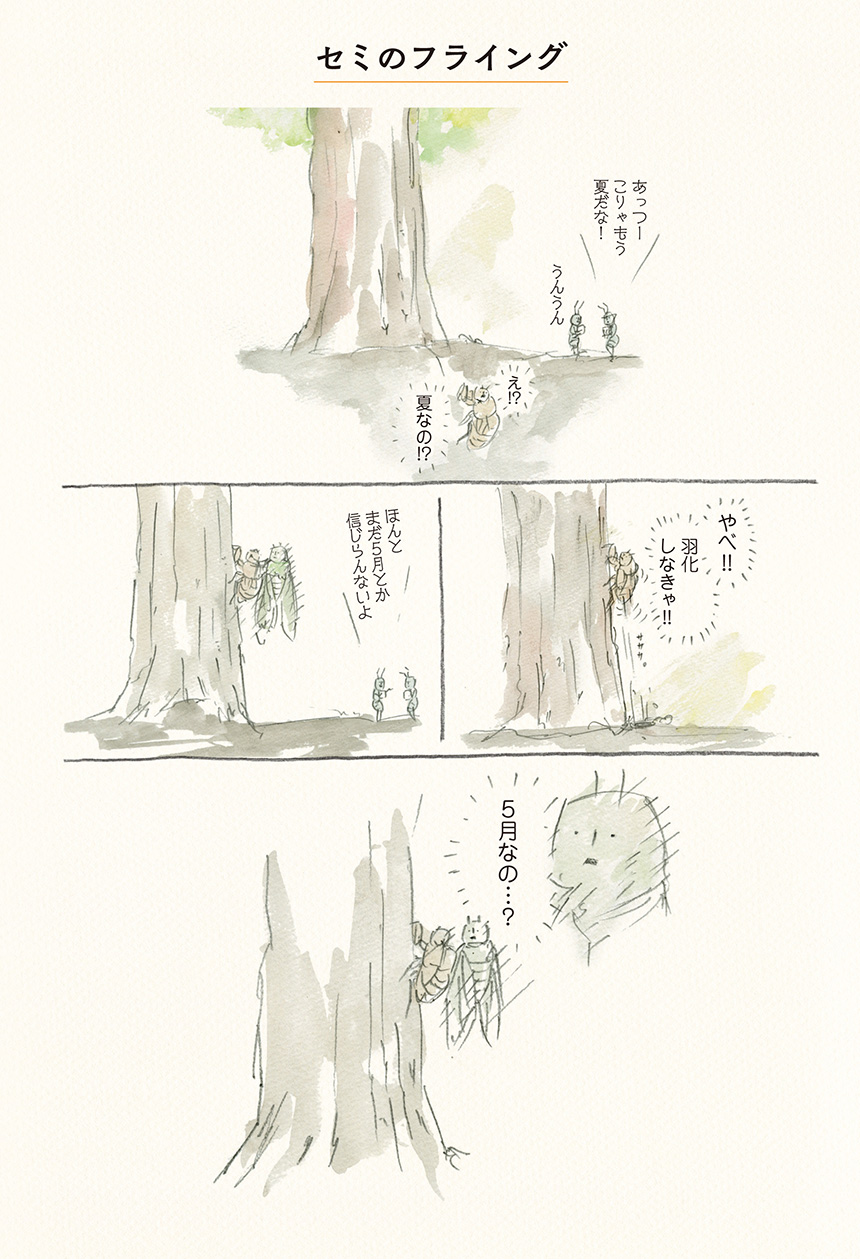 セミのフライング
あっつー
こりゃもう
夏だな！
うんうん
え!?
夏なの!?
やべ!!
羽化
しなきゃ!!
ササササ。
ほんと
まだ５月とか
信じらんないよ
５月なの…？